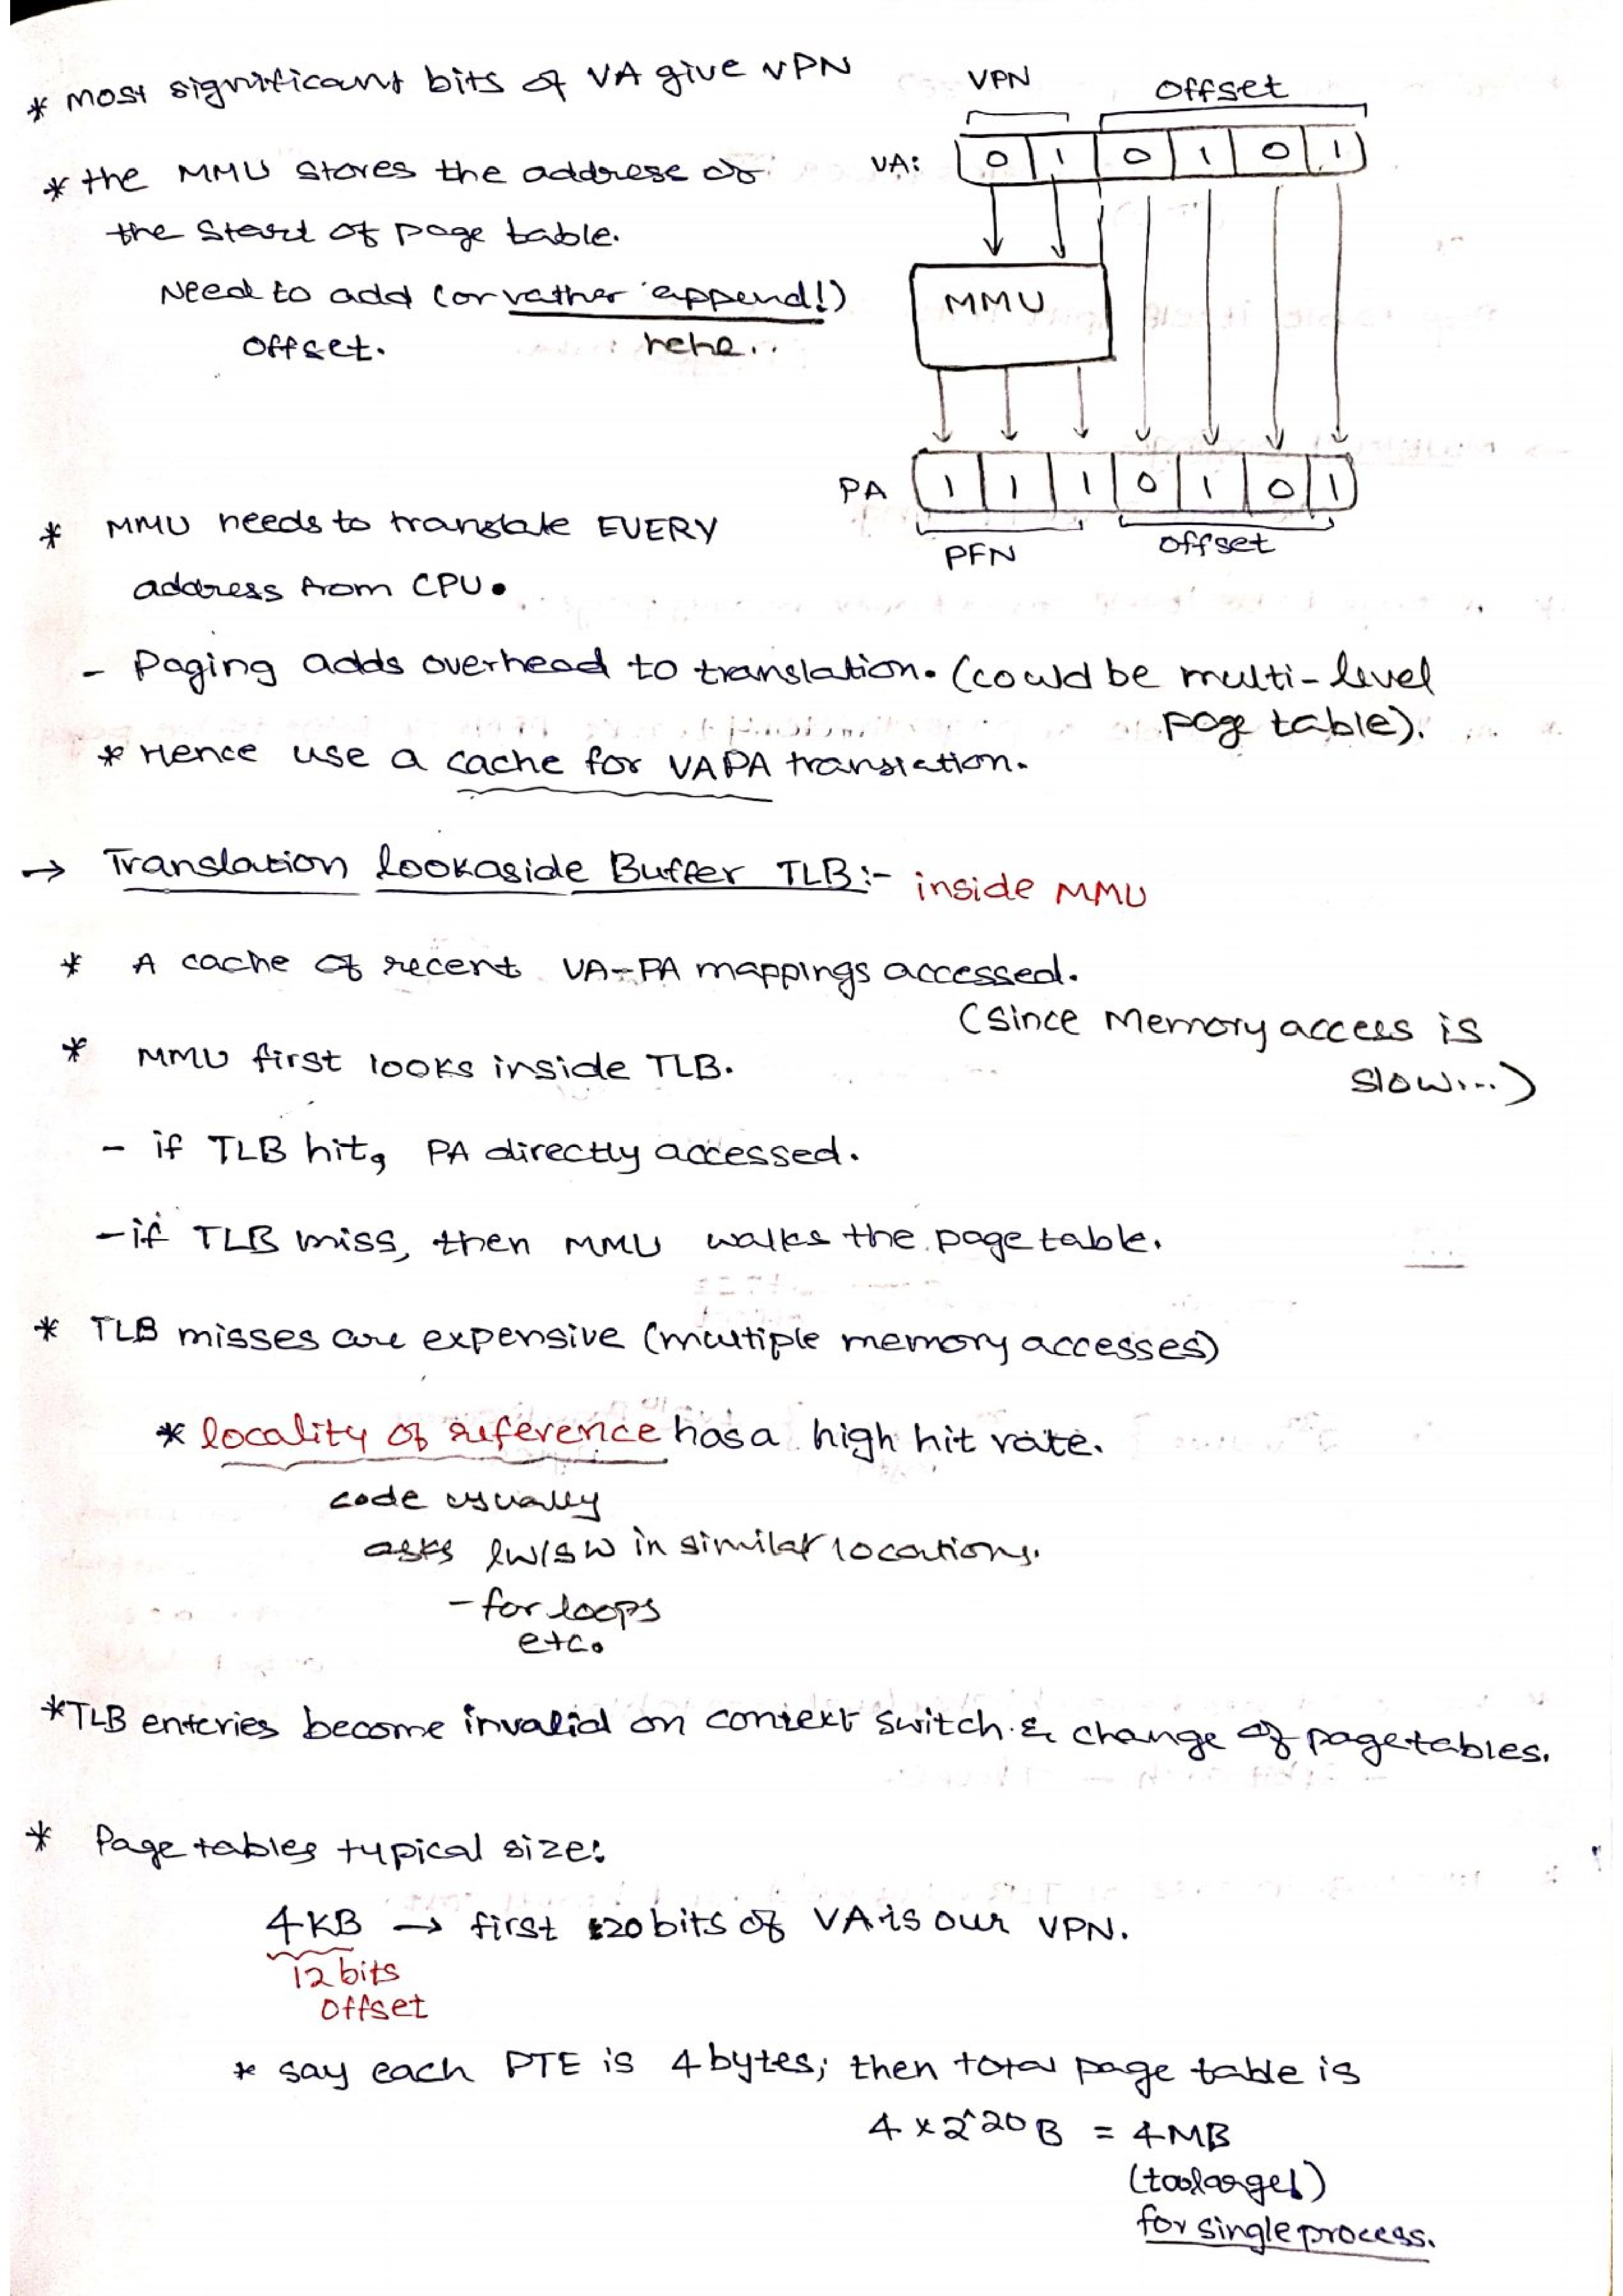 * most significant bits of VA give VPN
* the MMU stores the address of
the start of page table.
Need to add (or rather append!)
offset.
hehe..
VPN
Offset
VA: 0 1 0 1 0 1
MMU
PA 1 1 1 0 1 0 1
PFN
offset
* MMU needs to translate EVERY
address from CPU.
- Paging adds overhead to translation. (could be multi-level
page table).
* Hence use a cache for VAPA translation.
→ Translation lookaside Buffer TLB:- inside MMU
* A cache of recent VA-PA mappings accessed.
(since Memory access is
slow...)
* MMU first looks inside TLB.
- if TLB hit, PA directly accessed.
- if TLB miss, then MMU walks the page table.
* TLB misses are expensive (multiple memory accesses)
* locality of reference has a high hit rate.
code usually
asks lw/sw in similar locations.
- for loops
etc.
*TLB enteries become invalid on context switch & change of pagetables.
* Page tables typical size:
4KB → first 20 bits of VA is our VPN.
12 bits
offset
* say each PTE is 4 bytes; then total page table is
4 x 2^20 B = 4MB
(too large!)
for single process.